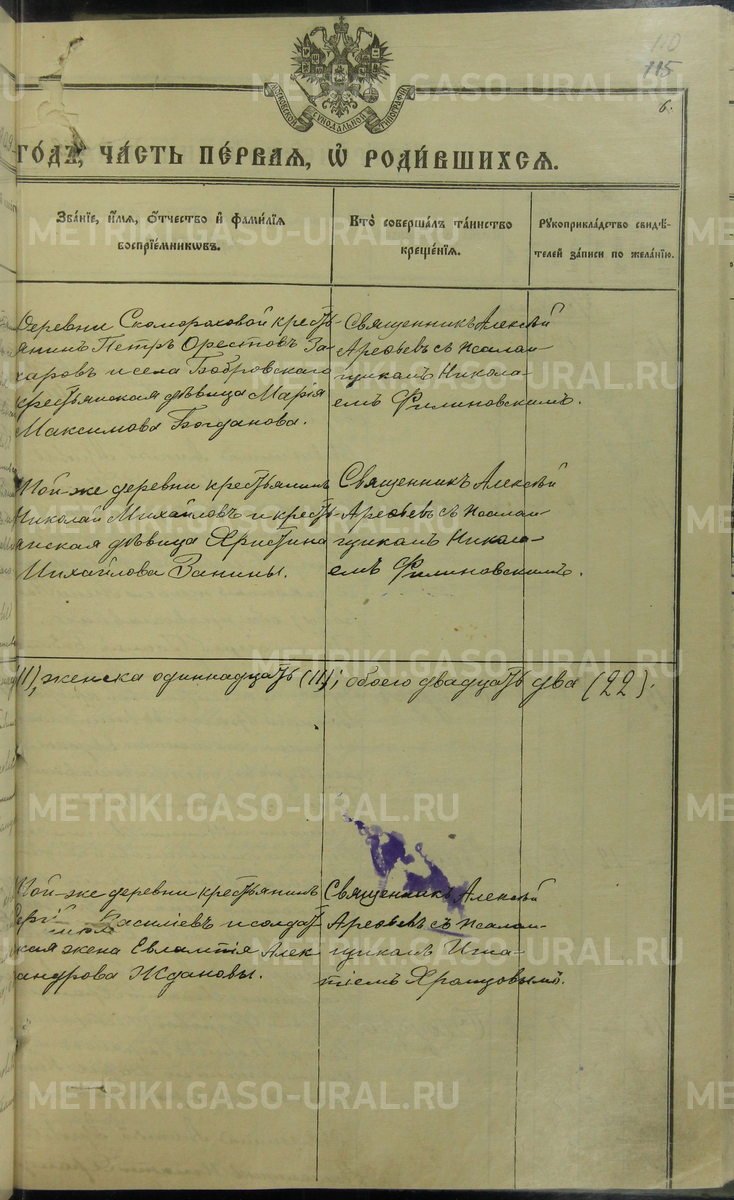 110
115
МОСКОВСКОЙ СѴНОДАЛЬНОЙ ТИПОГРАФІИ
6.
ГОДЪ, ЧАСТЬ ПЕРВАЯ, Ѡ РОДИВШИХСЯ.
Званіе, имя, отчество и фамилія воспріемниковъ.
Кто совершалъ таинство крещенія.
Рукоприкладство свидѣтелей записи по желанію.
Деревни Скомороховой кресть-
янинъ Петръ Орестовъ За-
харовъ и села Бобровскаго
крестьянская дѣвица Марія
Максимова Богданова.
Священникъ Алексѣй
Арефьевъ съ псалом-
щикомъ Никола-
емъ Филиновскимъ.
Той-же деревни крестьянинъ
Николай Михайловъ и кресть-
янская дѣвица Христина
Михайлова Занины.
Священникъ Алексѣй
Арефьевъ съ псалом-
щикомъ Никола-
емъ Филиновскимъ.
(11), женска одиннадцать (11); обоего двадцать два (22).
Той-же деревни крестьянинъ
Василіевъ и солдат-
ская жена Евлампія Алек
андрова Ждановы.
Священникъ Алексѣй
Арефьевъ съ псалом-
щикомъ Игна-
тіемъ Храмцовымъ.
METRIKI.GASO-URAL.RU